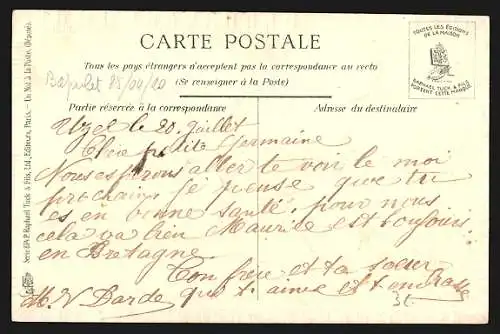 CARTE POSTALE
Tous les pays étrangers n'acceptent pas la correspondance au recto
(Se renseigner à la Poste)
TOUTES LES ÉDITIONS
DE LA MAISON
RAPHAEL TUCK & FILS
PORTENT CETTE MARQUE
Partie réservée à la correspondance
Adresse du destinataire
Uzel le 20 Juillet
Chère petite Germaine
Nous espérons aller te voir le moi
prochain je pense que tu
es en bonne santé, pour nous
cela va bien Maurice est toujours
en Bretagne.
Ton frère et ta soeur
qui t'aime et t'embrasse
M. V Darde
Raphael Tuck & Fils, Ltd, Editeurs, Paris.